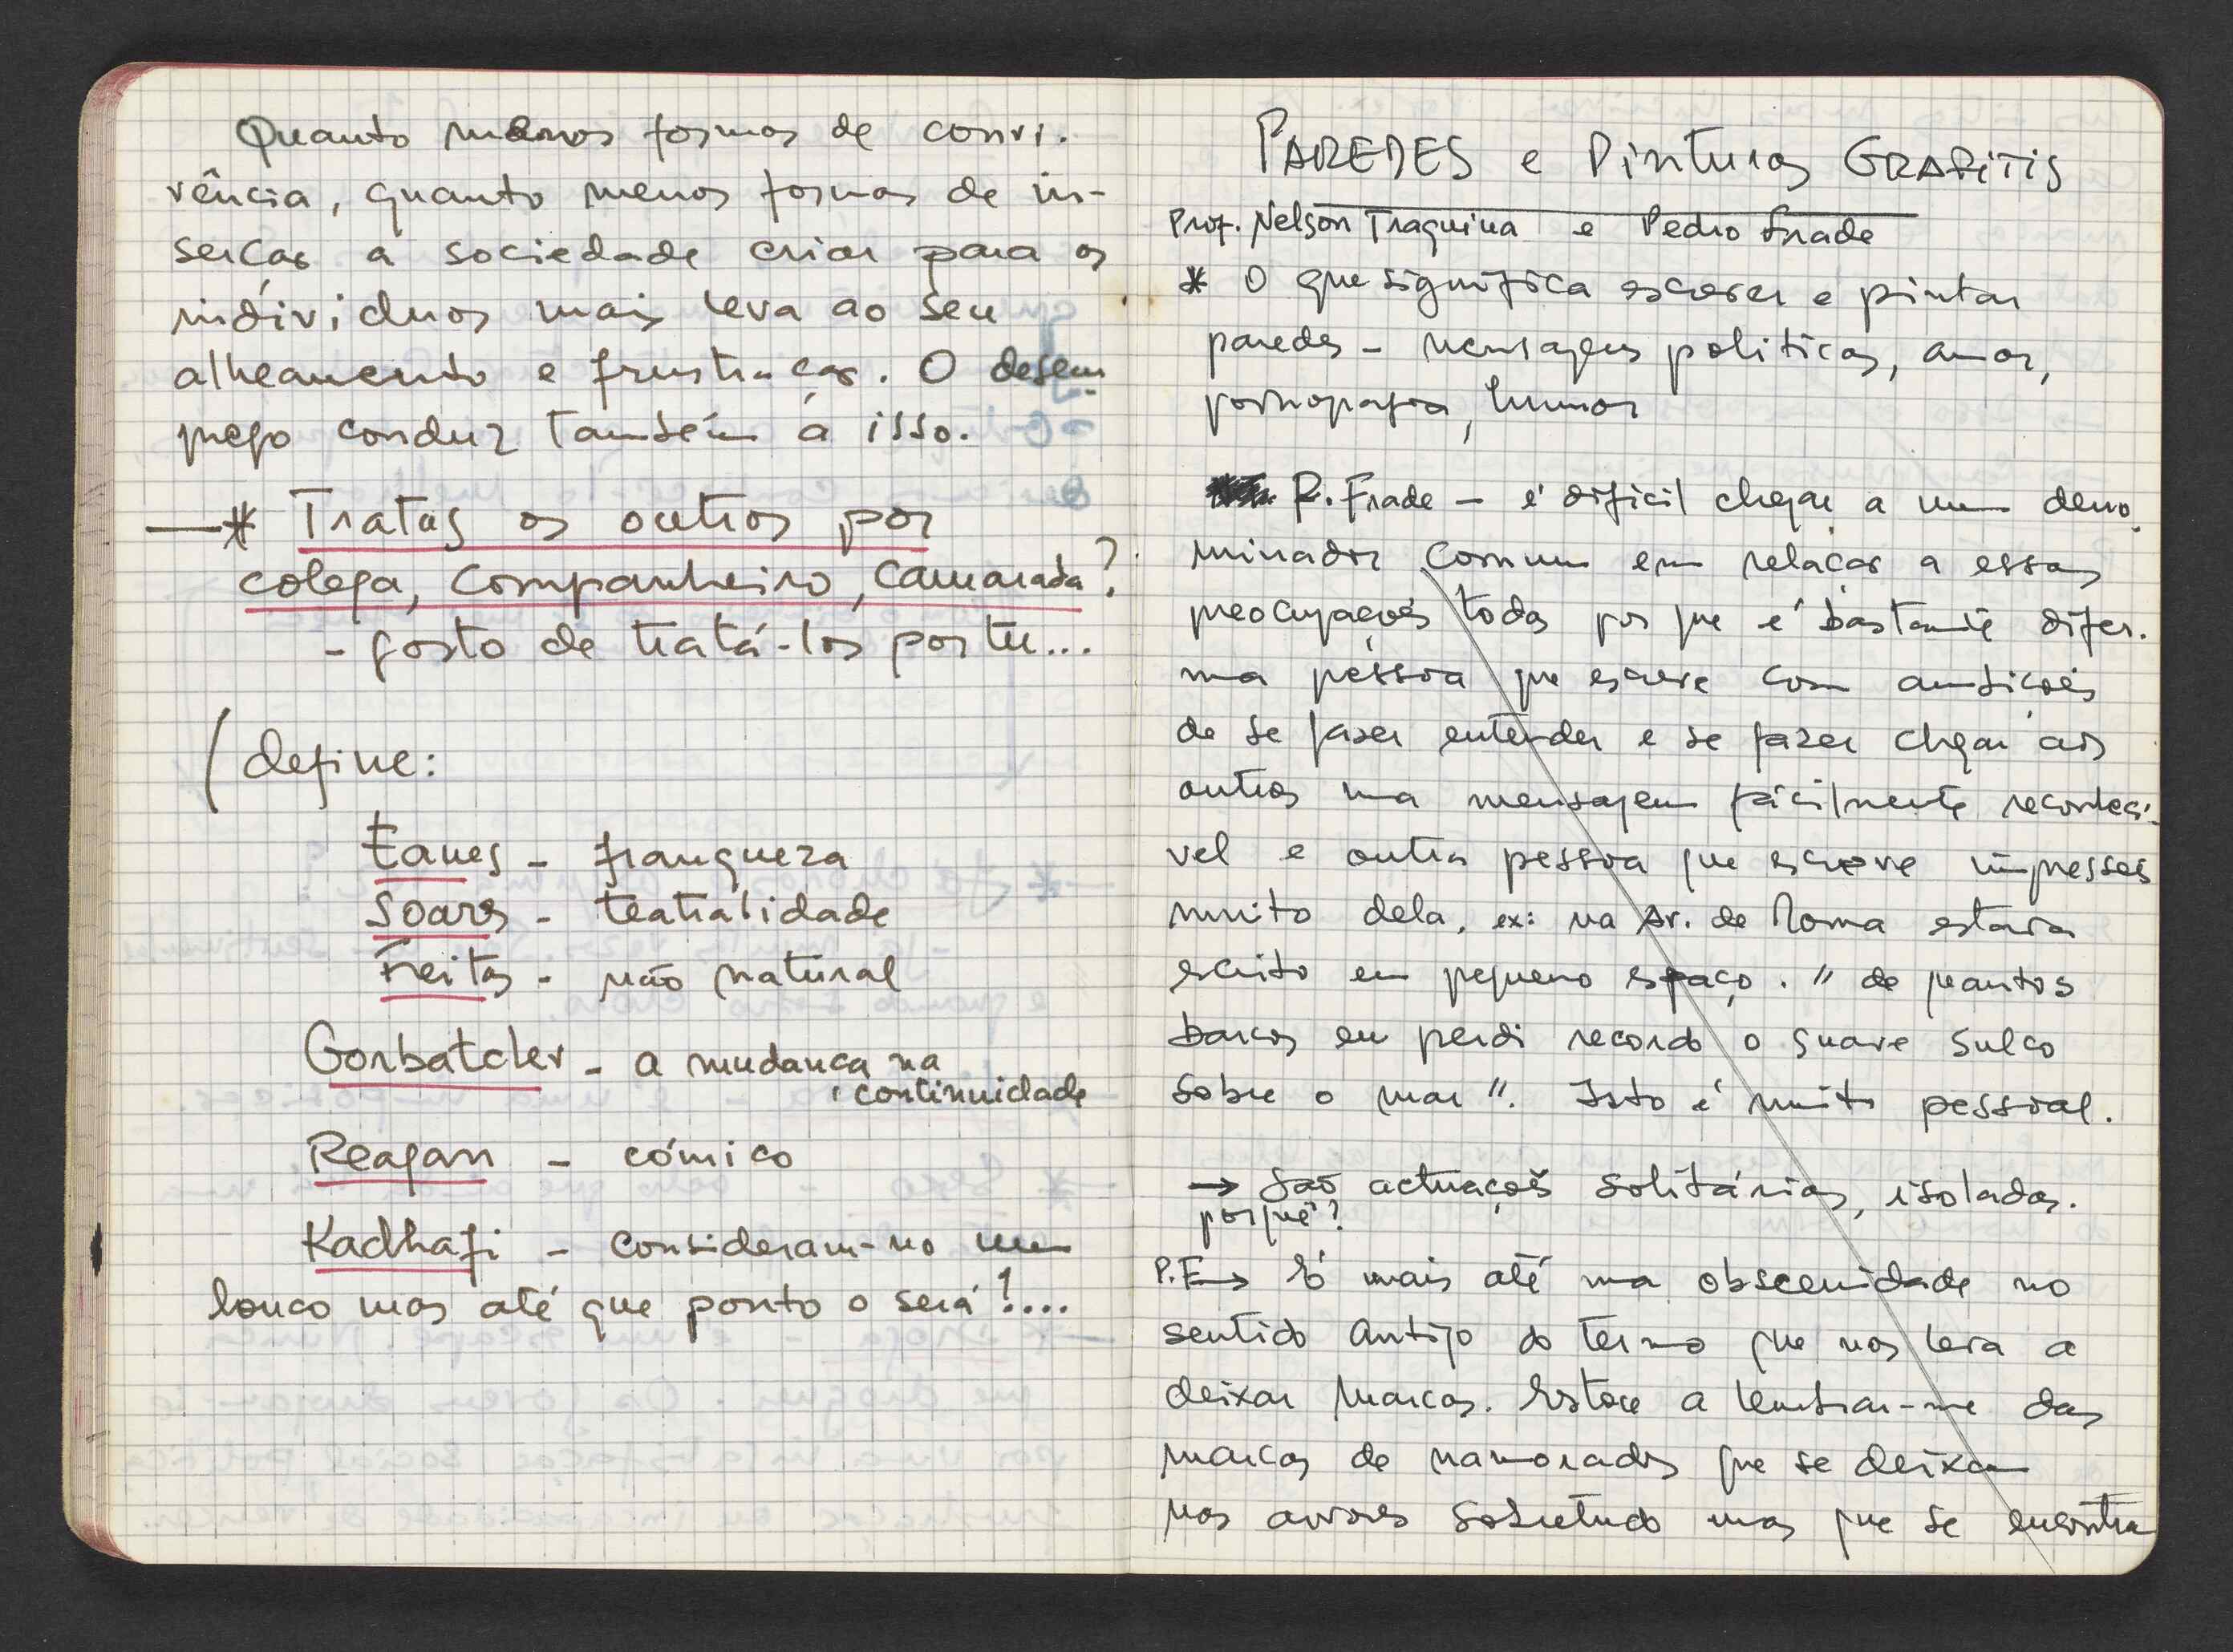 Quanto menos formas de convi-
vência, quanto menos formas de in-
serção a sociedade criar para os
indivíduos mais leva ao seu
alheamento e frustração. O desem-
prego conduz também a isso.
—* Tratas os outros por
colega, companheiro, camarada?
- gosto de tratá-los por tu...
( define:
Eanes - franqueza
Soares - teatralidade
Freitas - não natural
Gorbatchev - a mudança na
continuidade
Reagan - cómico
Kadhafi - consideram-no um
louco mas até que ponto o será!....
PAREDES e Pinturas GRAFITIS
Prof. Nelson Traquina e Pedro Frade
* O que significa escrever e pintar
paredes - mensagens politicas, amor,
pornografia, humor
P. Frade - é dificil chegar a um deno-
minador comum em relação a essas
preocupações todas por que é bastante difer.
uma pessoa que escreve com ambições
de se fazer entender e se fazer chegar aos
outros uma mensagem fácilmente reconheci-
vel e outra pessoa que escreve impressões
muito dela, ex: na Av. de Roma estava
escrito em pequeno espaço. "de quantos
barcos eu perdi recordo o suave sulco
sobre o mar". Isto é muito pessoal.
→ São actuações solitárias, isoladas.
porquê?
P.F → É mais até uma obscenidade no
sentido antigo do termo que nos leva a
deixar marcas. Estou a lembrar-me das
marcas de namorados que se deixam
nas arvores sobretudo mas que se encontra